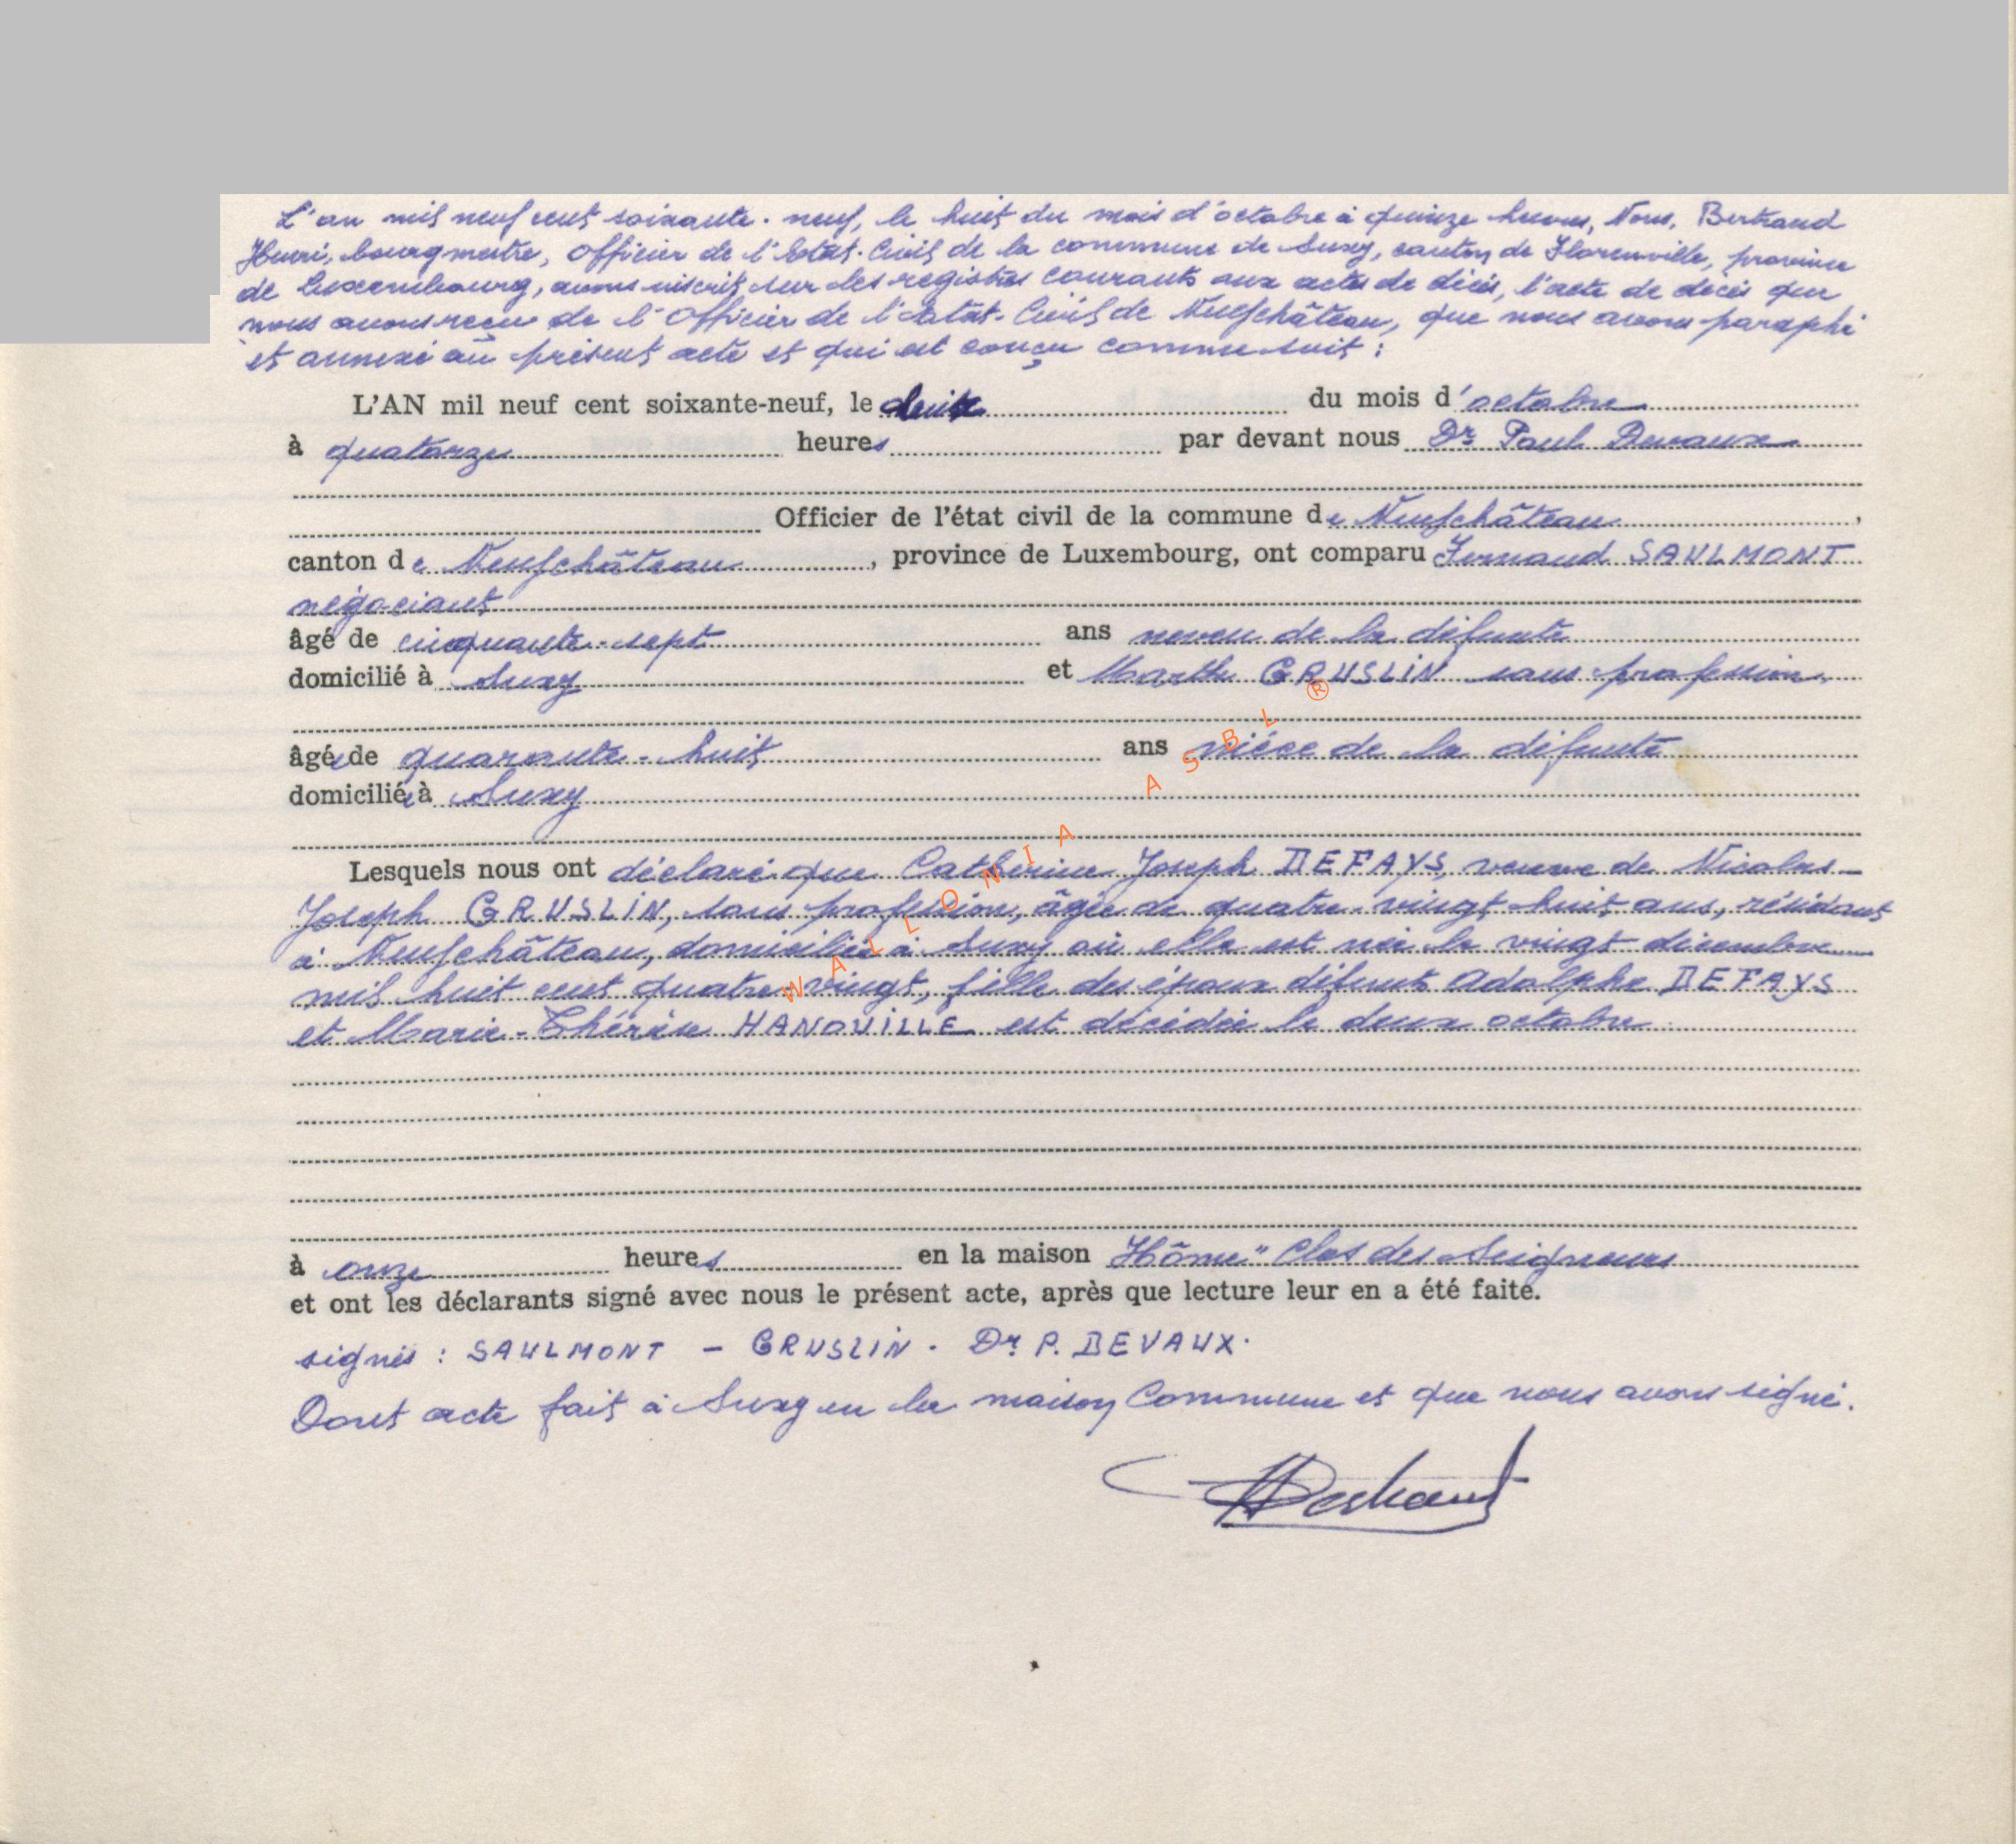 L'an mil neuf cent soixante-neuf, le huit du mois d'octobre à quinze heures, Nous, Bertrand
Henri, bourgmestre, Officier de l'Etat-Civil de la commune de Suxy, canton de Florenville, province
de Luxembourg, avons inscrit sur les registres courants aux actes de décès, l'acte de décès que
nous avons reçu de l'Officier de l'Etat-Civil de Neufchâteau, que nous avons paraphé
et annexé au présent acte et qui est conçu comme suit :
L'AN mil neuf cent soixante-neuf, le deux du mois d'octobre
à quatorze heures par devant nous Dr Paul Devaux
Officier de l'état civil de la commune de Neufchâteau,
canton de Neufchâteau, province de Luxembourg, ont comparu Fernand SAULMONT
négociant
âgé de cinquante-sept ans neveu de la défunte
domicilié à Suxy et Marthe GRUSLIN sans profession
âgée de quarante-huit ans nièce de la défunte
domiciliée à Suxy
Lesquels nous ont déclaré que Catherine Joseph DEFAYS, veuve de Nicolas-
Joseph GRUSLIN, sans profession, âgée de quatre-vingt huit ans, résidant
à Neufchâteau, domiciliée à Suxy où elle est née le vingt décembre
mil huit cent quatre-vingt, fille des époux défunts Adolphe DEFAYS
et Marie-Thérèse HANOUILLE est décédée le deux octobre
à onze heures en la maison Hôme "Clos des Seigneurs
et ont les déclarants signé avec nous le présent acte, après que lecture leur en a été faite.
signés : SAULMONT - GRUSLIN - Dr P. DEVAUX.
Dont acte fait à Suxy en la maison Commune et que nous avons signé.
HBertrand
WALLONIA ASBL ®